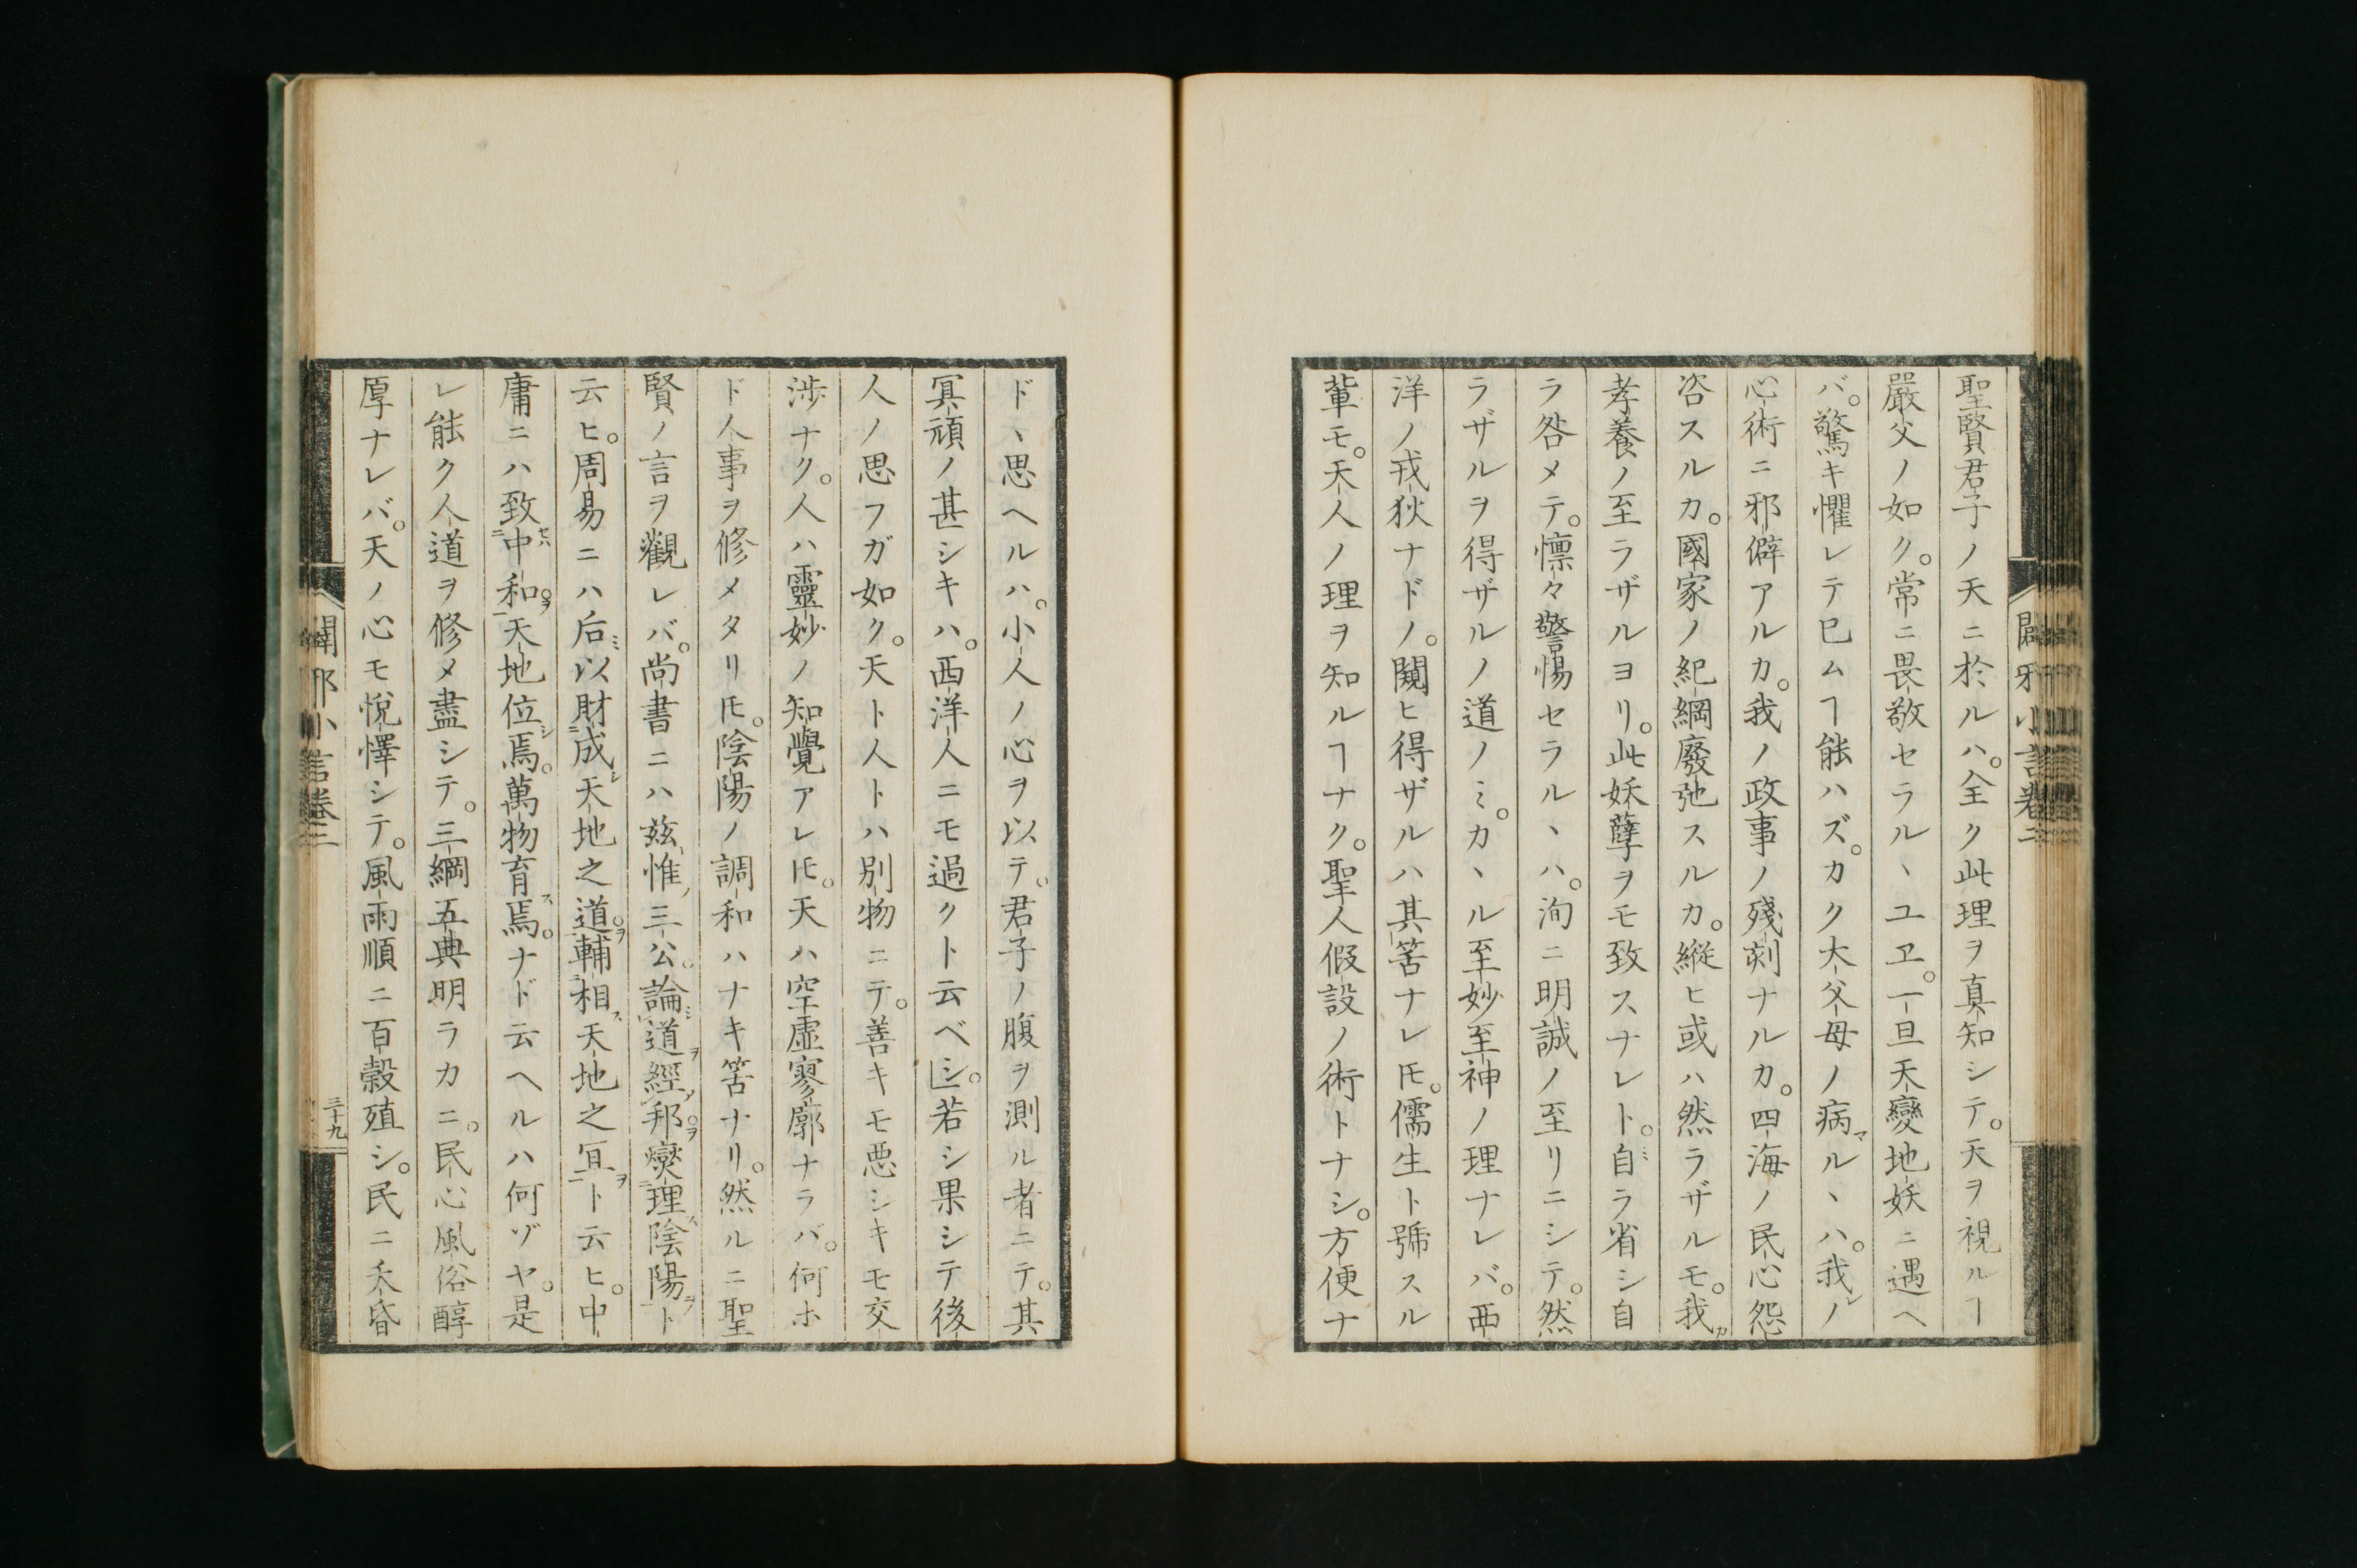 聖賢君子ノ天ニ於ルハ。全ク此理ヲ真知シテ。天ヲ視ルヿ
嚴父ノ如ク。常ニ畏敬セラルヽユヱ。一旦天變地妖ニ遇ヘ
バ。驚キ懼レテ已ムヿ能ハズ。カク大父母ノ病マルヽハ。我レノ
心術ニ邪僻アルカ。我ノ政事ノ殘刻ナルカ。四海ノ民心怨
咨スルカ。國家ノ紀綱廢弛スルカ。縱ヒ或ハ然ラザルモ。我カ
孝養ノ至ラザルヨリ。此妖孽ヲモ致スナレト。自ミラ省シ自
ラ咎メテ。懍々警惕セラルヽハ。洵ニ明誠ノ至リニシテ。然
ラザルヲ得ザルノ道ノミ。カヽル至妙至神ノ理ナレバ。西
洋ノ戎狄ナドノ。闚ヒ得ザルハ其筈ナレ𪜈。儒生ト號スル
輩モ。天人ノ理ヲ知ルヿナク。聖人假設ノ術トナシ。方便ナ
闢邪小言卷二
ドヽ思ヘルハ。小人ノ心ヲ以テ。君子ノ腹ヲ測ル者ニテ。其
冥頑ノ甚シキハ。西洋人ニモ過クト云ベシ。若シ果シテ後
人ノ思フガ如ク。天ト人トハ別物ニテ。善キモ悪シキモ交
渉ナク。人ハ靈妙ノ知覺アレ𪜈。天ハ空虛寥廓ナラバ。何ホ
ド人事ヲ修メタリ𪜈。陰陽ノ調和ハナキ筈ナリ。然ルニ聖
賢ノ言ヲ觀レバ。尚書ニハ茲惟三公。論道經邦。燮理陰陽ト
云ヒ。周易ニハ后以財成天地之道。輔相天地之冝ト云ヒ。中
庸ニハ致中和。天地位焉。萬物育焉。ナド云ヘルハ何ゾヤ。是
レ能ク人道ヲ修メ盡シテ。三綱五典明ラカニ。民心風俗醇
厚ナレバ。天ノ心モ悅懌シテ。風雨順ニ百穀殖シ。民ニ夭昏
闢邪小言卷二
三十九